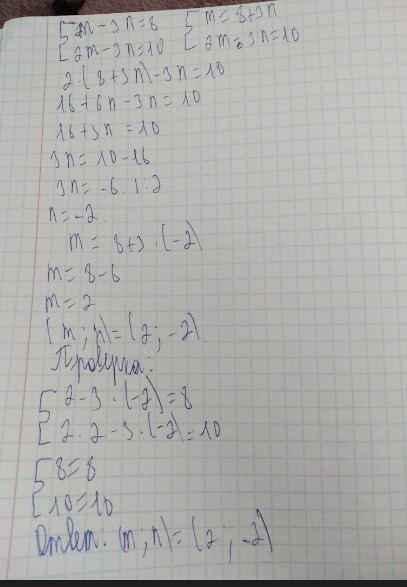 { m - 3n = 8 { m = 8 + 3n
{ 2m - 3n = 10 { 2m - 3n = 10
2·(8+3n) - 3n = 10
16 + 6n - 3n = 10
16 + 3n = 10
3n = 10 - 16
3n = -6
n = -2
m = 8 + 3·(-2)
m = 8 - 6
m = 2
(m; n) = (2; -2)
Проверка:
{ 2 - 3·(-2) = 8
{ 2·2 - 3·(-2) = 10
{ 8 = 8
{ 10 = 10
Ответ: (m; n) = (2; -2)